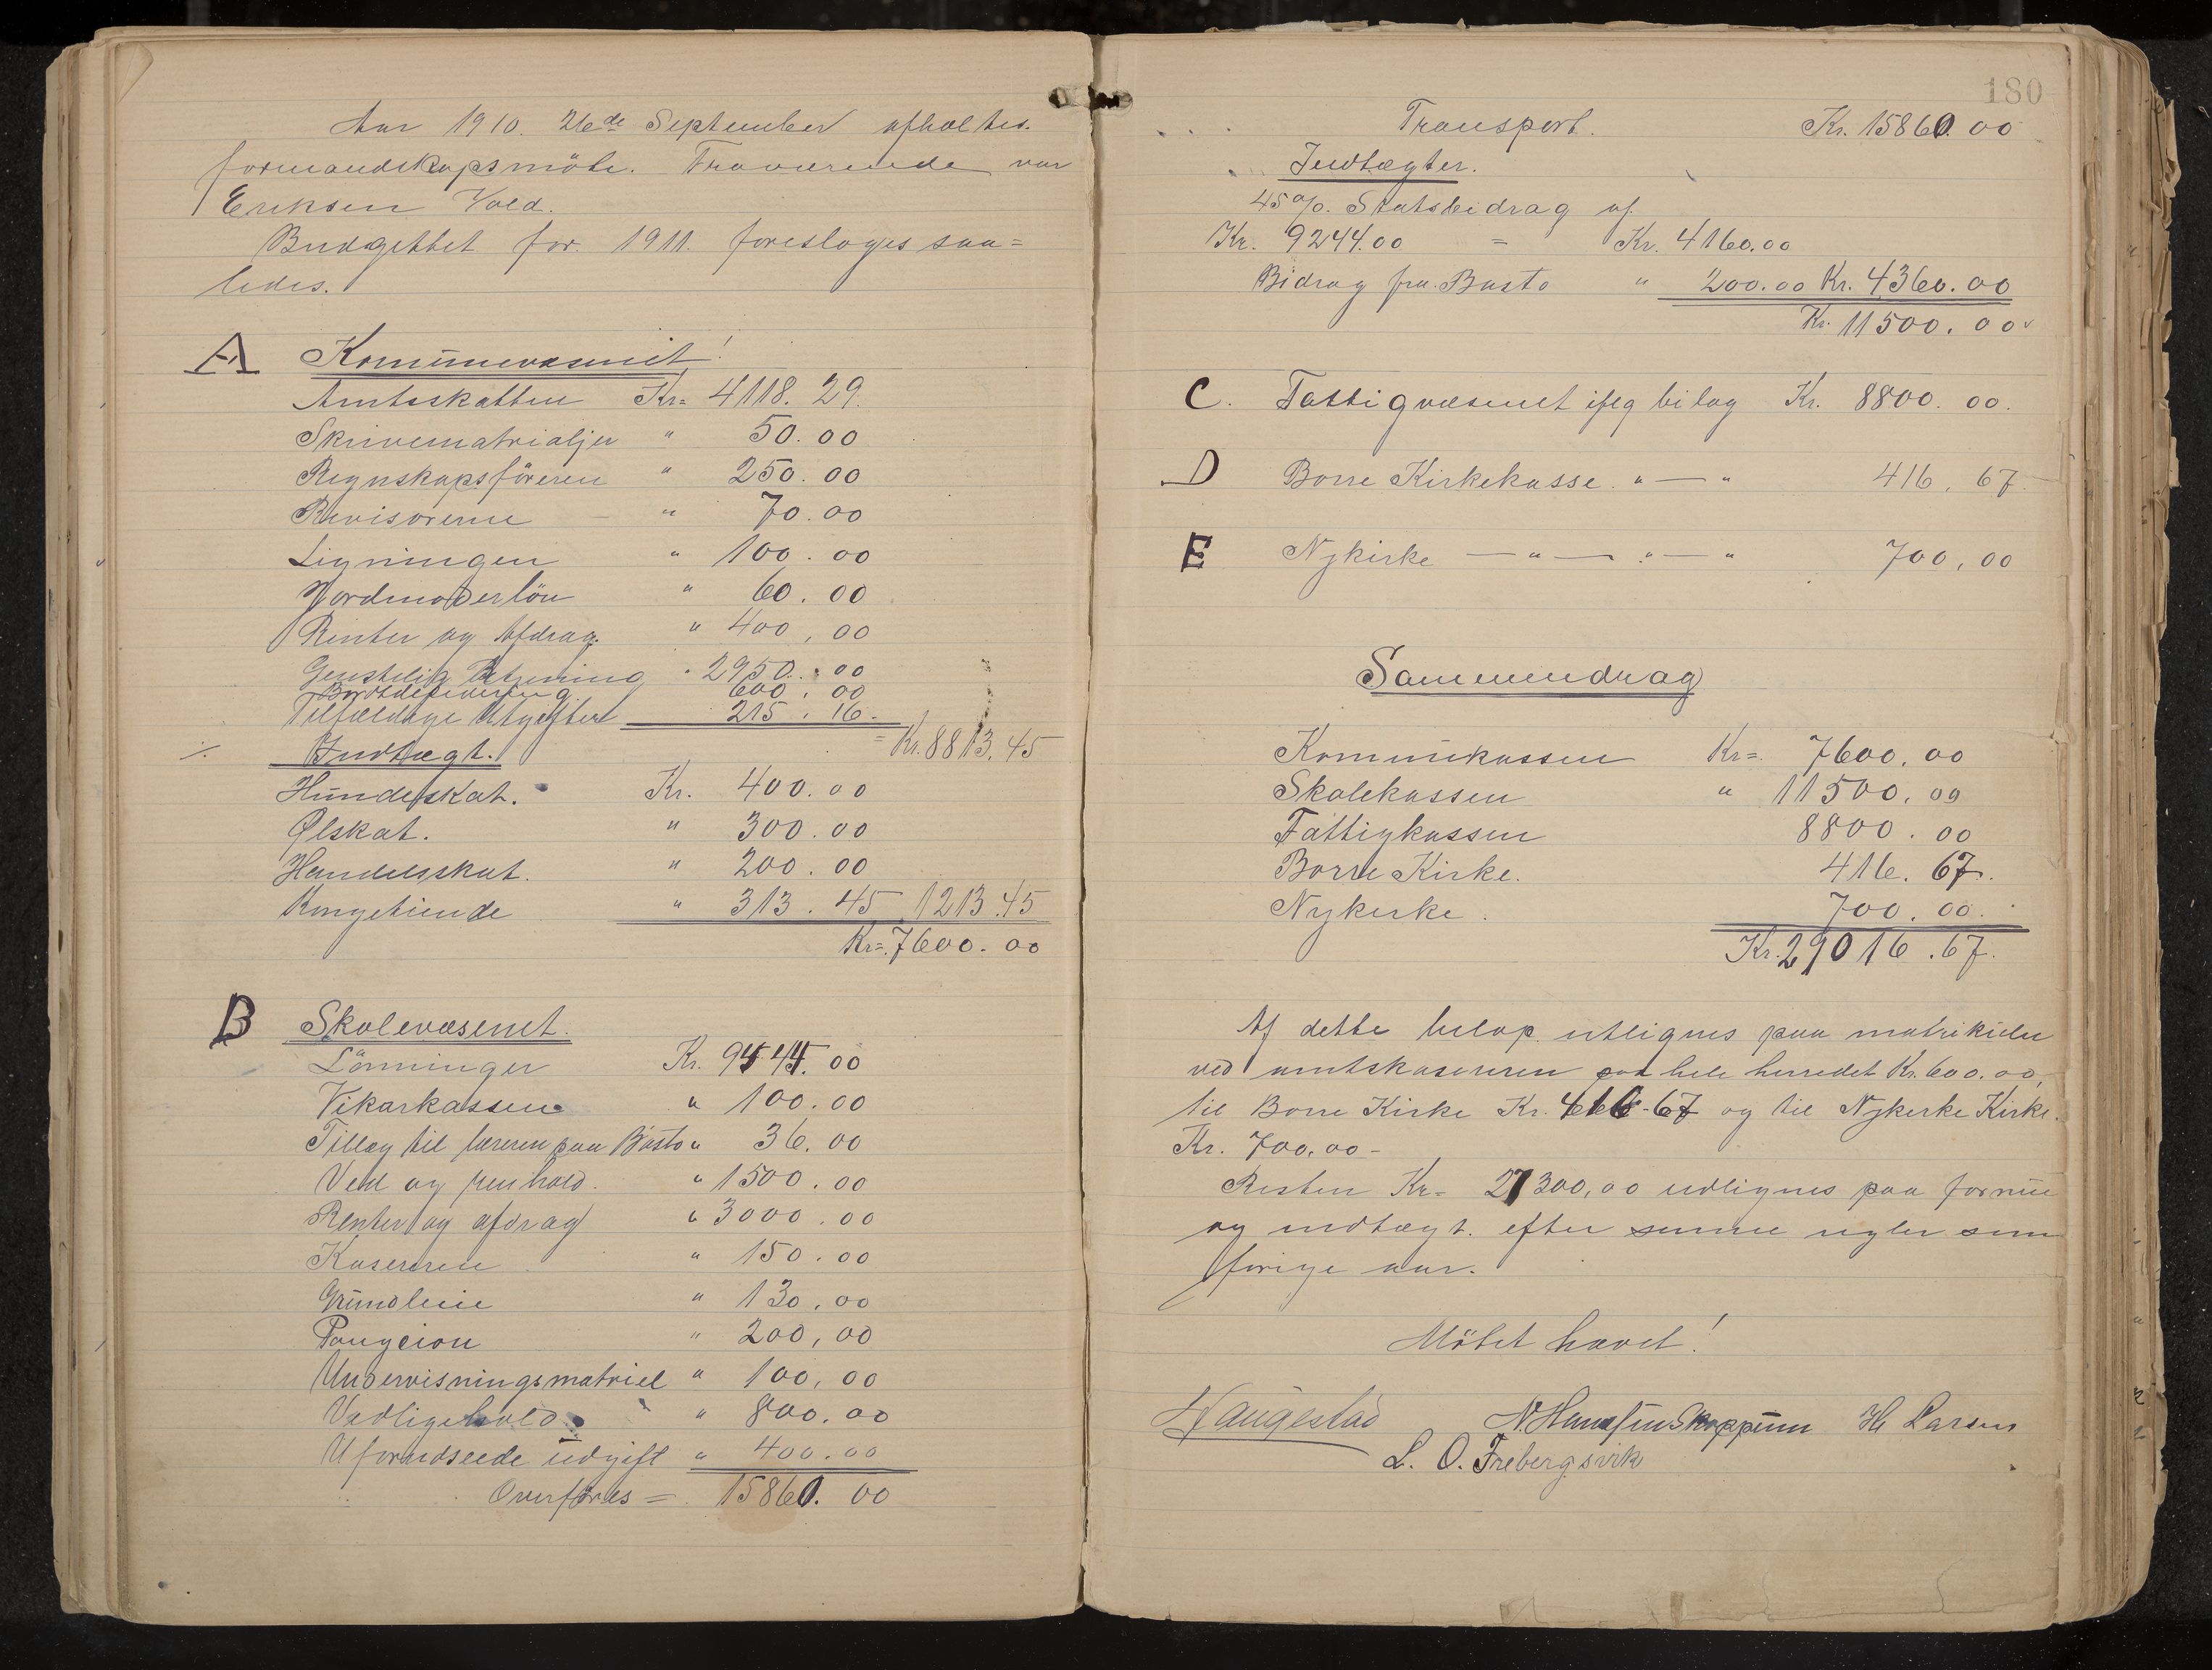 Aar 1910. 26de September afholtes
formandskapsmöte. Fraværende var
Eriksen Vold.
Budgettet for 1911. foresloges saa=
ledes.
A Kommunevæsenet!
Amtsskatten Kr= 4118. 29.
Skrivematrialjer " 50.00
Regnskapsföreren " 250.00
Revisorerne " 70.00
Ligningen " 100.00
Jordmoderlön " 60.00
Renter og Afdrag. " 400,00
Genstelig 2950.00
600,00
Tilfældige Utgifter 215,16. = Kr. 8813,45
./. Indtægt.
Hundeskat. Kr. 400.00
Ølskat. " 300.00
Handelsskat. " 200.00
Kongetiende " 313.45 1213.45
Kr=.7600.00
B Skolevæsenet.
Lönninger Kr. 9444.00
Vikarkassen " 100.00
Tillæg til læreren paa Basto " 36.00
Ved og renhold. " 1500.00
Renter og afdrag " 3000.00
Kasereren " 150.00
Grundleie " 130,00
Pangcion " 200,00
Undervisningsmatriel " 100,00
Vedligehold " 800.00
Uforudseede udgift " 400.00
Overföres = 15860.00
180
Transport. Kr. 15860.00
Indtægter.
45%. Statsbidrag af.
Kr. 9244.00 = Kr. 4160.00
Bidrag fra Basto " 200.00 Kr. 4360.00
Kr. 11500.00
C. Fattigvæsenet iflg bilag Kr. 8800.00.
D Borre Kirkekasse. " — " 416,67.
E Nykirke — " — " — " 700,00
Sammendrag
Kommunekassen Kr=. 7600.00
Skolekassen " 11500,00
Fattigkassen 8800.00
Borre Kirke. 416.67.
Nykirke. 700.00.
Kr. 29016.67.
Af dette belöp utlignes paa matrikulen
ved amtskasereren paa hele herredet Kr. 600.00,
til Borre Kirke Kr. 416-67 og til Nykirke Kirke.
Kr. 700,00-
Resten Kr= 27300,00 udlignes paa formue
og indtægt. efter samme regler som
forige aar.
Mötet hævet!
Haugestad N. Hansen Skoppum H Larsen
L. O. Frebergsvik